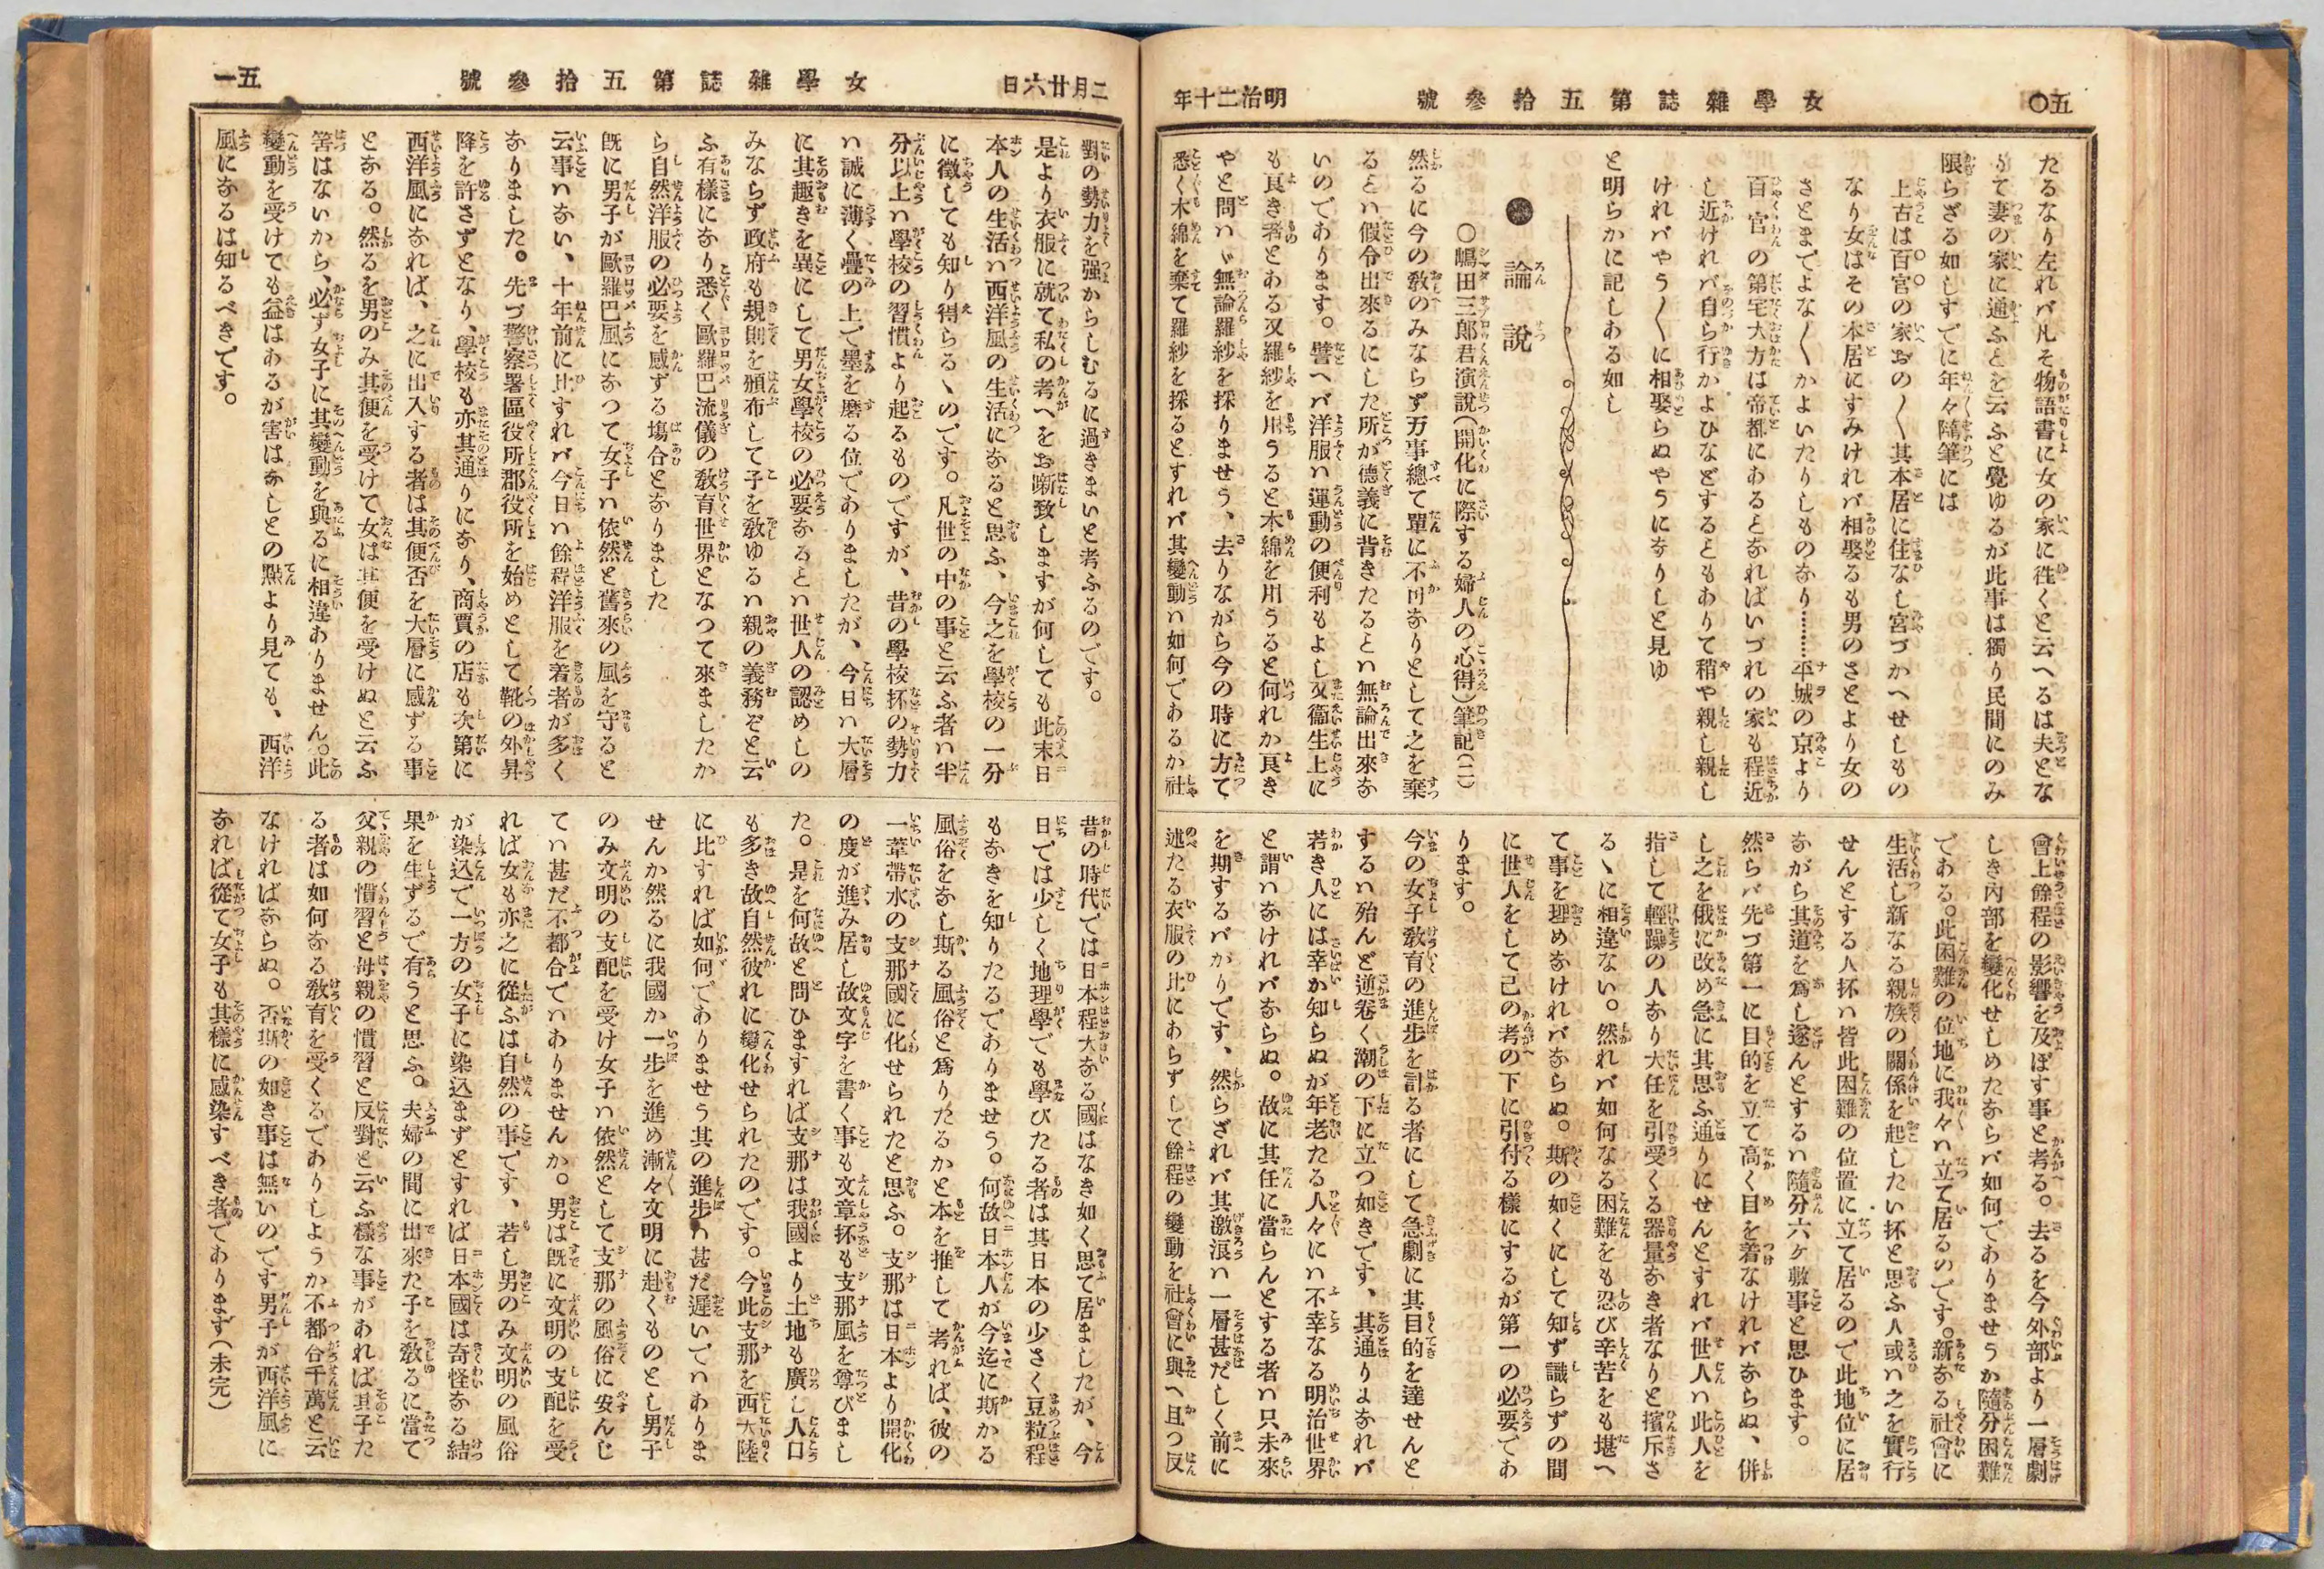 五〇
女學雜誌第五拾參號
明治二十年
たるなり左れバ凡そ物語書に女の家に徃くと云へるは夫とな
りて妻の家に通ふとを云ふと覺ゆるが此事は獨り民間にのみ
限らざる如しすでに年々隨筆には
上古は百官の家おの〱其本居に住なし宮づかへせしもの
なり女はその本居にすみけれバ相娶るも男のさとより女の
さとまでよな〱かよいたりしものなり………平城の京より
百官の第宅大方は帝都にあるとなればいづれの家も程近
し近けれバ自ら行かよひなどするともありて稍や親し親し
けれバやう〱に相娶らぬやうになりしと見ゆ
と明らかに記しある如し
●論說
〇嶋田三郎君演說(開化に際する婦人の心得)筆記(二)
然るに今の敎のみならず万事總て單に不可なりとして之を棄
るとハ假令出來るにした所が德義に背きたるとハ無論出來な
いのであります。譬へバ洋服ハ運動の便利もよし又衞生上に
も良き者とある又羅紗を用うると木綿を用うると何れか良き
やと問ハヾ無論羅紗を採りませう、去りながら今の時に方て
悉く木綿を棄て羅紗を採るとすれバ其變動ハ如何であるか社
會上餘程の影響を及ぼす事と考る。去るを今外部より一層劇
しき內部を變化せしめたならバ如何でありませうか隨分困難
である。此困難の位地に我々ハ立て居るのです。新なる社會に
生活し新なる親族の關係を起したい抔と思ふ人或ハ之を實行
せんとする人抔ハ皆此困難の位置に立て居るので此地位に居
ながら其道を爲し遂んとするハ隨分六ケ敷事と思ひます。
然らバ先づ第一に目的を立て高く目を着なけれバならぬ、併
し之を俄に改め急に其思ふ通りにせんとすれバ世人ハ此人を
指して輕躁の人なり大任を引受くる器量なき者なりと擯斥さ
るヽに相違ない。然れバ如何なる困難をも忍び辛苦をも堪へ
て事を理めなけれバならぬ。斯の如くにして知ず識らずの間
に世人をして己の考の下に引付る樣にするが第一の必要であ
ります。
今の女子敎育の進步を計る者にして急劇に其目的を達せんと
するハ殆んど逆卷く潮の下に立つ如きです、其通りよなれバ
若き人には幸か知らぬが年老たる人々にハ不幸なる明治世界
と謂ハなけれバならぬ。故に其任に當らんとする者ハ只未來
を期するバかりです、然らざれバ其激浪ハ一層甚だしく前に
述たる衣服の比にあらずして餘程の變動を社會に與へ且つ反
二月廿六日
女學雜誌第五拾參號
五一
對の勢力を强からしむるに過きまいと考ふるのです。
是より衣服に就て私の考へをお噺致しますが何しても此末日
本人の生活ハ西洋風の生活になると思ふ、今之を學校の一分
に徵しても知り得らるヽのです。凡世の中の事と云ふ者ハ半
分以上ハ學校の習慣より起るものですが、昔の學校抔の勢力
ハ誠に薄く疊の上で墨を磨る位でありましたが、今日ハ大層
に其趣きを異にして男女學校の必要なるとハ世人の認めしの
みならず政府も規則を頒布して子を敎ゆるハ親の義務ぞと云
ふ有樣になり悉く歐羅巴流儀の敎育世界となつて來ましたか
ら自然洋服の必要を感ずる塲合となりました
旣に男子が歐羅巴風になつて女子ハ依然と舊來の風を守ると
云事ハない、十年前に比すれバ今日ハ餘程洋服を着者が多く
なりました。先づ警察署區役所郡役所を始めとして靴の外昇
降を許さずとなり、學校も亦其通りになり、商賈の店も次第に
西洋風になれば、之に出入する者は其便否を大層に感ずる事
となる。然るを男のみ其便を受けて女は其便を受けぬと云ふ
筈はないから、必ず女子に其變動を與るに相違ありません。此
變動を受けても益はあるが害はなしとの點より見ても、西洋
風になるは知るべきです。
昔の時代では日本程大なる國はなき如く思て居ましたが、今
日では少しく地理學でも學びたる者は其日本の少さく豆粒程
もなきを知りたるでありませう。何故日本人が今迄に斯かる
風俗をなし斯る風俗と爲りたるかと本を推して考れば、彼の
一葦帶水の支那國に化せられたと思ふ。支那は日本より開化
の度が進み居し故文字を書く事も文章抔も支那風を尊びまし
た。是を何故と問ひますれば支那は我國より土地も廣し人口
も多き故自然彼れに變化せられたのです。今此支那を西大陸
に比すれば如何でありませう其の進步ハ甚だ遲いでハありま
せんか然るに我國か一步を進め漸々文明に赴くものとし男子
のみ文明の支配を受け女子ハ依然として支那の風俗に安んじ
てハ甚だ不都合でハありませんか。男は旣に文明の支配を受
れば女も亦之に從ふは自然の事です、若し男のみ文明の風俗
が染込で一方の女子に染込まずとすれば日本國は奇怪なる結
果を生ずるで有うと思ふ。夫婦の間に出來た子を敎るに當て
父親の慣習と母親の慣習と反對と云ふ樣な事があれば其子た
る者は如何なる敎育を受くるでありしようか不都合千萬と云
なければならぬ。否斯の如き事は無いのです男子が西洋風に
なれば從て女子も其樣に感染すべき者であります(未完)